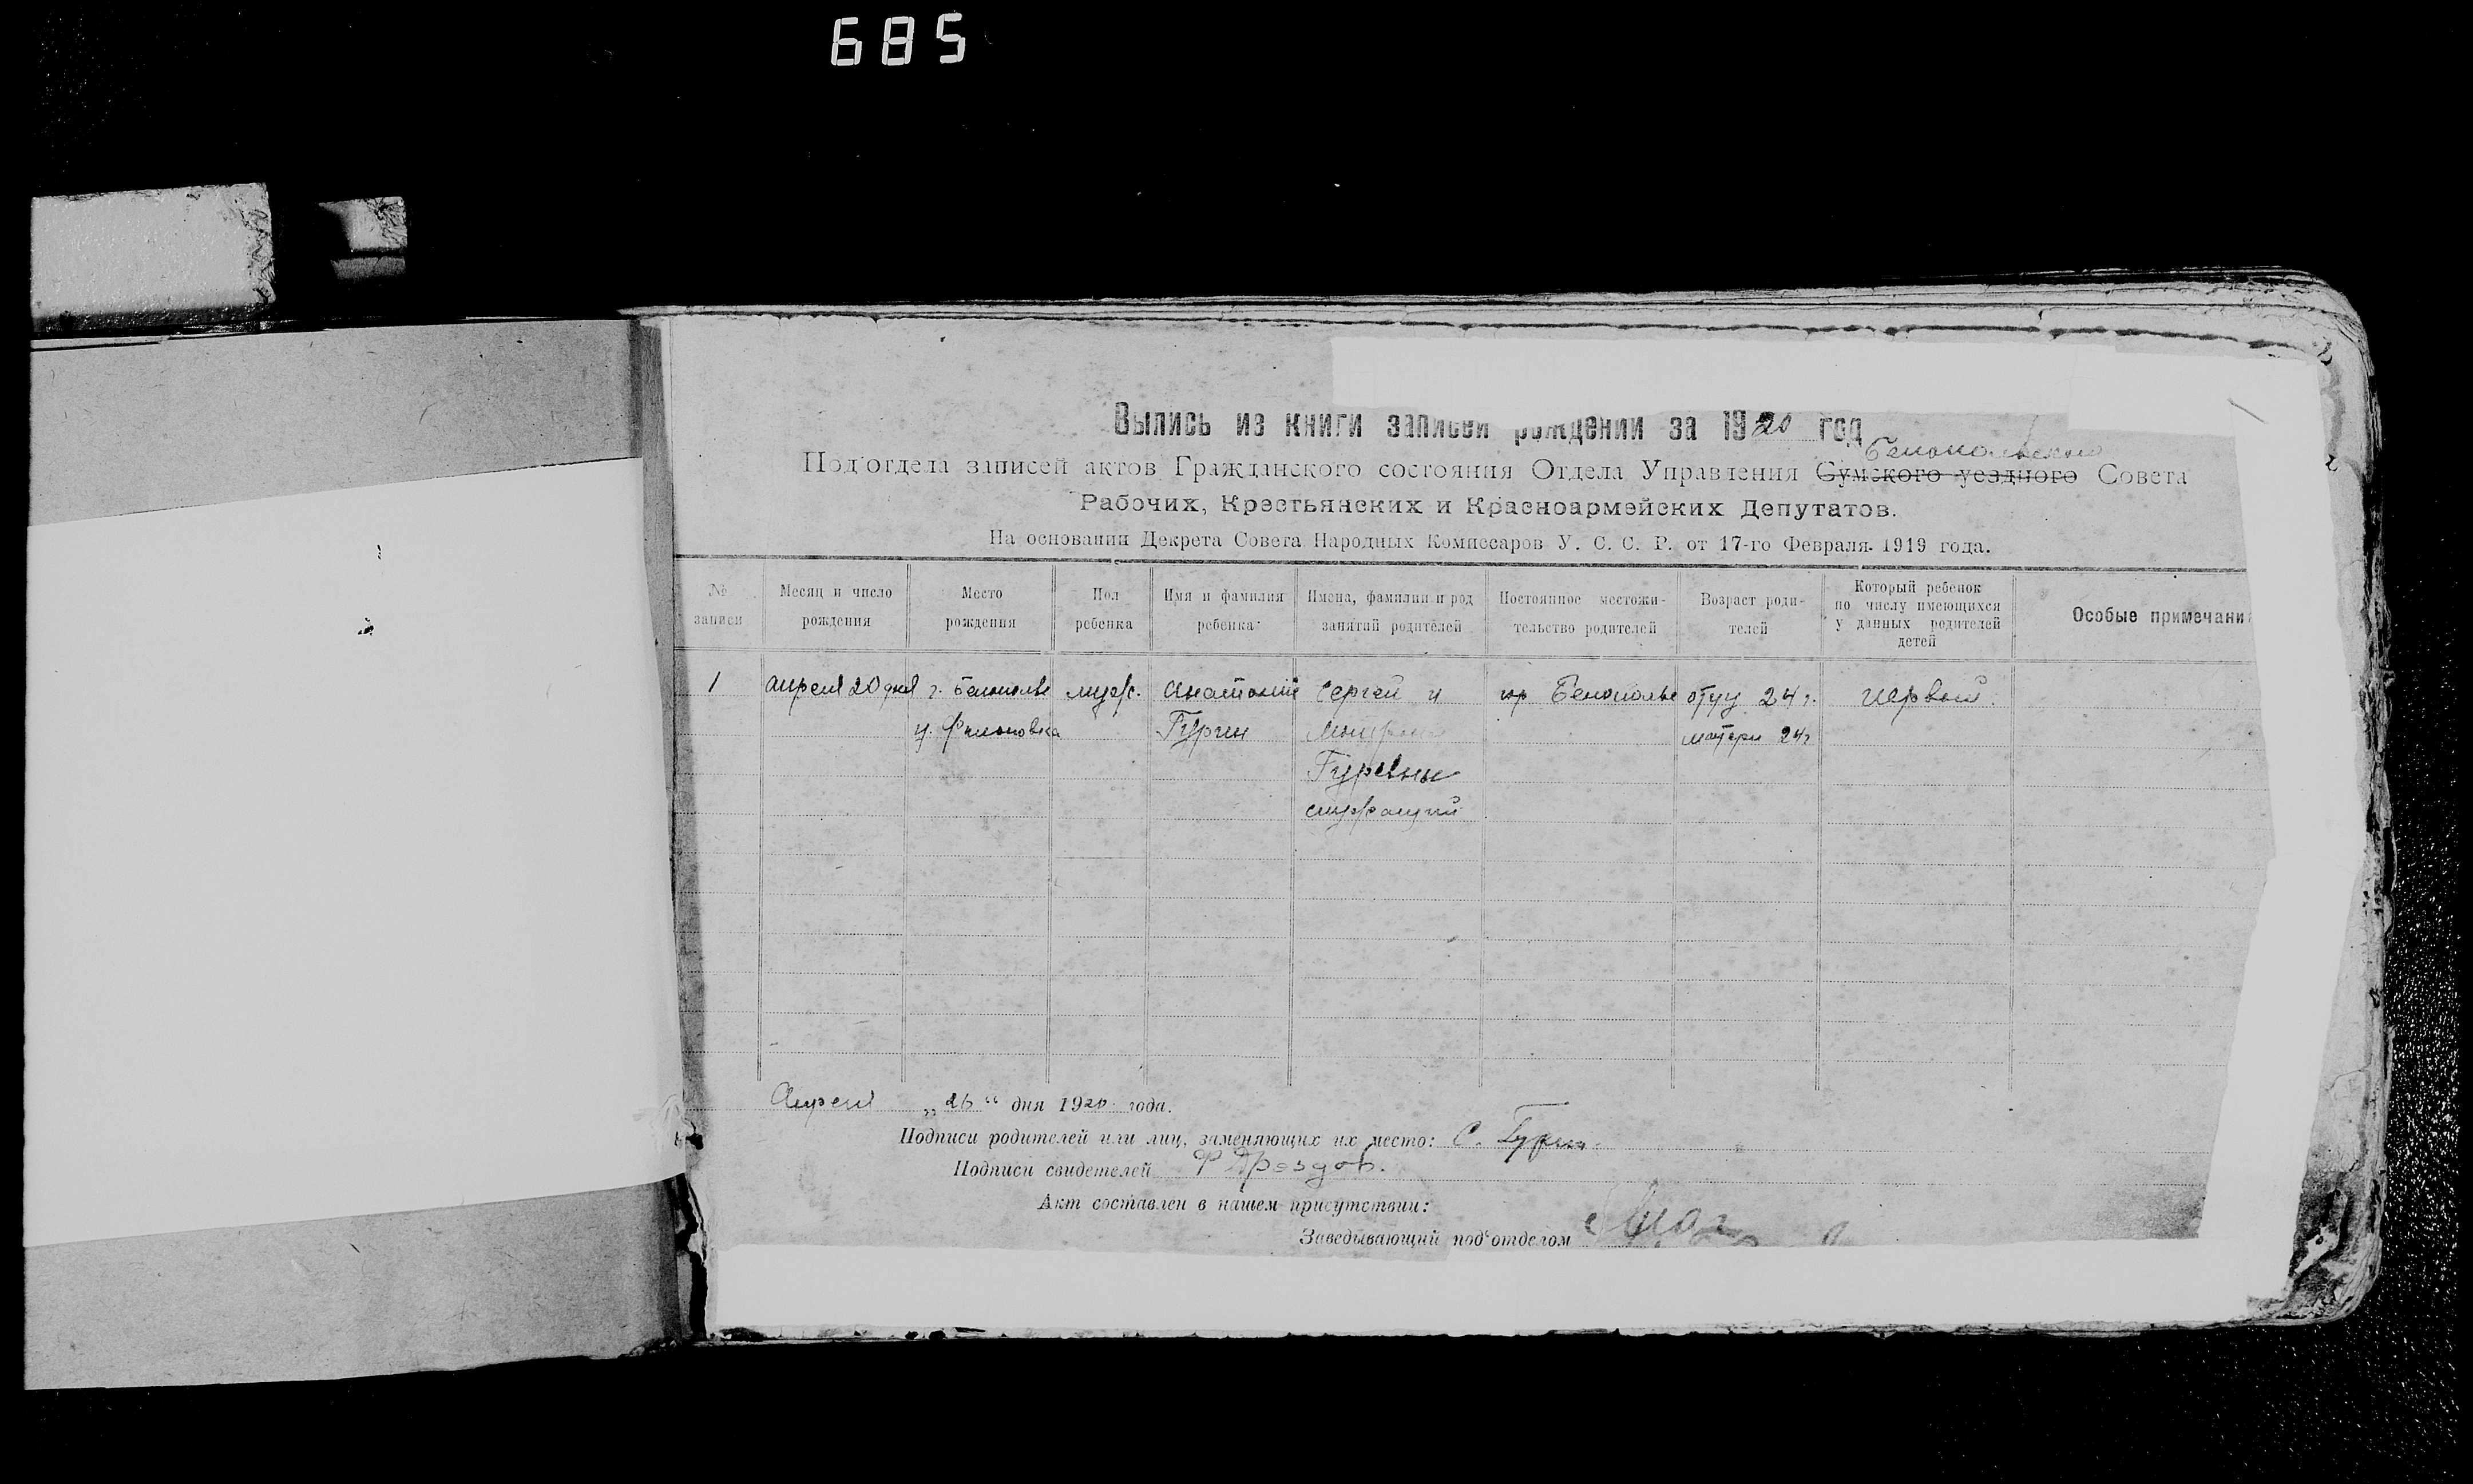 685
2
Выпись из книги записей рождений за 1920 год
Белопольского
Под'отдела записей актов Гражданского состояния Отдела Управления Сумского уездного Совета
Рабочих, Крестьянских и Красноармейских Депутатов.
На основании Декрета Совета Народных Комиссаров У. С. С. Р. от 17-го Февраля 1919 года.
№ записи Месяц и число рождения Место рождения Пол ребенка Имя и фамилия ребенка Имена, фамилии и род занятий родителей Постоянное местожи-тельство родителей Возраст роди-телей Который ребенок по числу имеющихся у данных родителей детей Особые примечани
1 апреля 20 дня г. Белополье муж. Анатолий Сергей и гор Белополье отцу 24 г. первый
Гурин матери 24 г
служащий
Апреля „26“ дня 1920 года.
Подписи родителей или лиц, заменяющих их место: С. Гурин
Подписи свидетелей Дроздов.
Акт составлен в нашем присутствии:
Заведывающий под'отделом